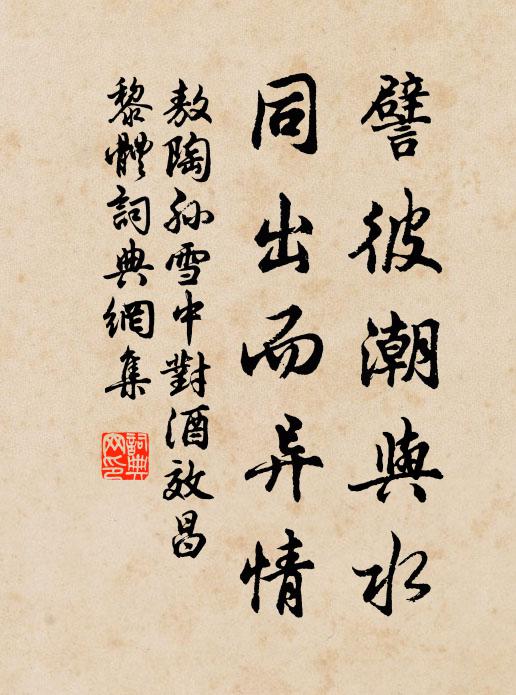 譬彼潮與水
同出而异情
敖陶孫雪中對酒效昌
黎體詞典網集
詞典
网印